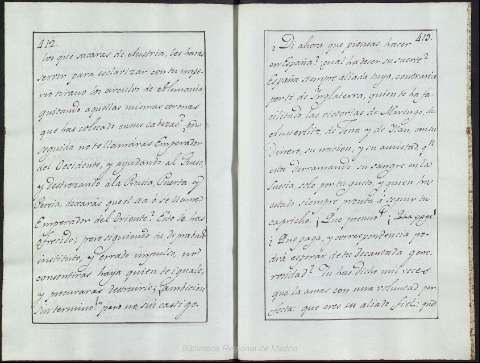 412.
los que sacaras de Austria, les haras
servir para esclavizar con tu impe-
rio tirano los circulos de Alemania
quitando aquellas mismas coronas
que has colocado en sus cabezas? En
seguida no te llamaras Emperador
del Occidente, y ayudando al Turco,
y destrozando a la Rusia, Puerta, y
Persia, trataras que el sea o se llame
Emperador del Oriente? Esto le has
ofrecido; pero siguiendo tu depravado
instituto, y errado impulso, no
consentiras haya quien te iguale,
y procuraras destruirle; Ambicion
sin termino! pero no sin castigo.
413.
¿Di ahora que piensas hacer
en España? qual ha de ser su suerte?
España siempre aliada tuya, contraria
por ti de Inglaterra, quien te ha fa-
cilitado las victorias de Marengo, de
Austerlitz de Jena, y de Ulm, con su
Dinero, su union, y su amistad, y
este derramando su sangre en la
Suecia solo por tu gusto, y quien ha
estado siempre pronta a seguir tu
capricho ¿Que premio?
¿Que paga, y correspondencia po-
drá esperar de tu decantada gene-
rosidad? Tu has dicho mil veces
que la amas con una voluntad per-
fecta: que eres su aliado fiel; que
Biblioteca Regional de Madrid